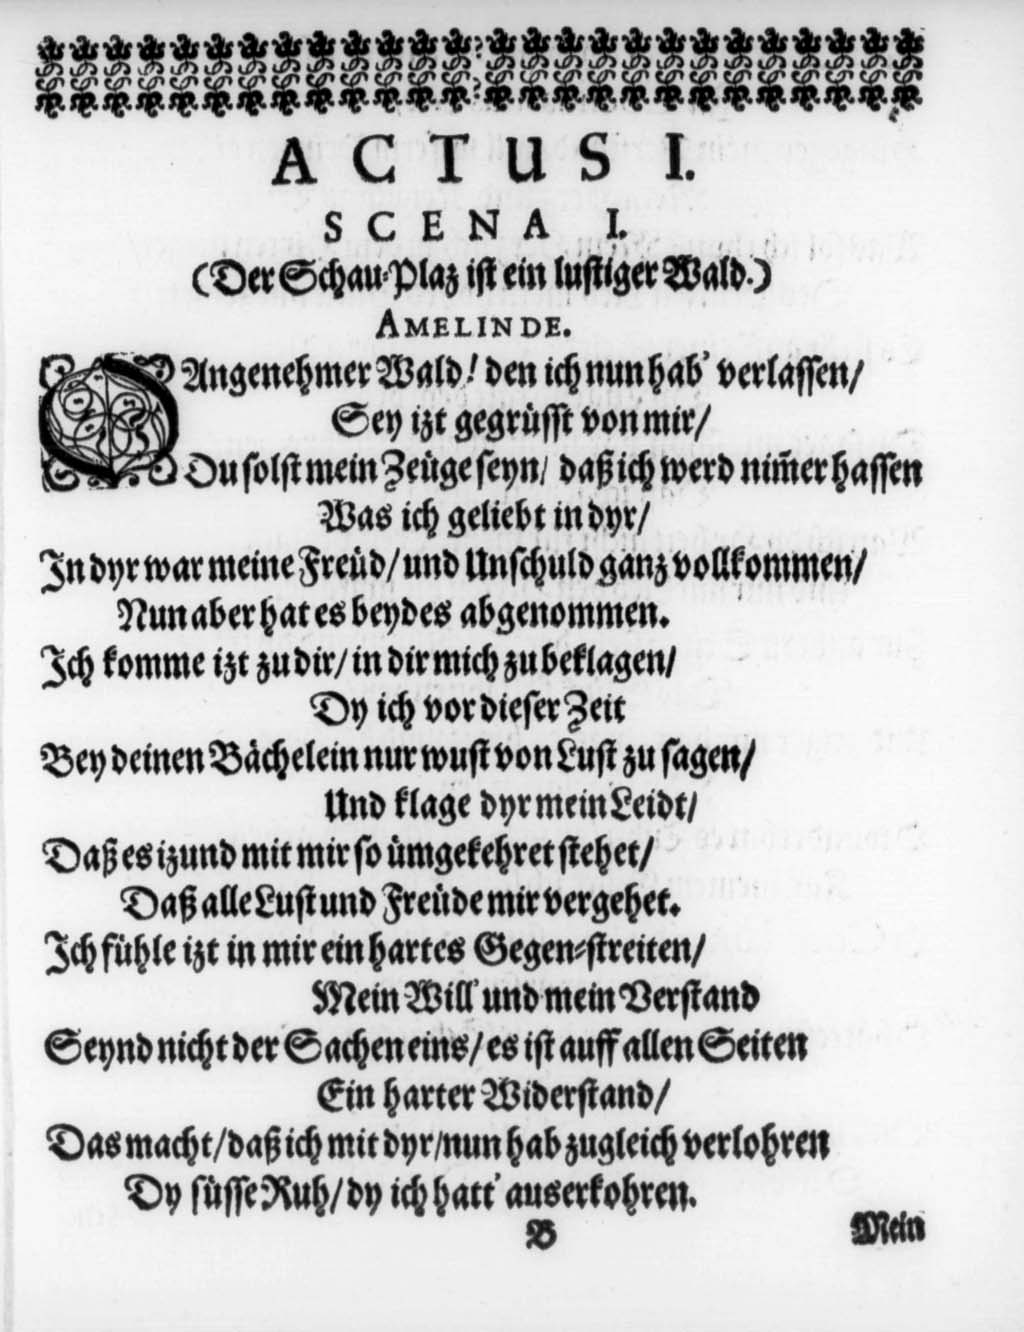 ACTUS I.
SCENA I.
(Der Schau-Plaz ist ein lustiger Wald.)
AMELINDE.
O Angenehmer Wald! den ich nun hab' verlassen/
Sey izt gegrüsst von mir/
Du solst mein Zeüge seyn/ daß ich werd nim̃er hassen
Was ich geliebt in dyr/
In dyr war meine Freüd/ und Unschuld ganz vollkommen/
Nun aber hat es beydes abgenommen.
Ich komme izt zu dir/ in dir mich zu beklagen/
Dy ich vor dieser Zeit
Bey deinen Bächelein nur wust von Lust zu sagen/
Und klage dyr mein Leidt/
Daß es izund mit mir so ümgekehret stehet/
Daß alle Lust und Freüde mir vergehet.
Ich fühle izt in mir ein hartes Gegen-streiten/
Mein Will' und mein Verstand
Seynd nicht der Sachen eins/ es ist auff allen Seiten
Ein harter Widerstand/
Das macht/ daß ich mit dyr/ nun hab zugleich verlohren
Dy süsse Ruh/ dy ich hatt' auserkohren.
B Mein